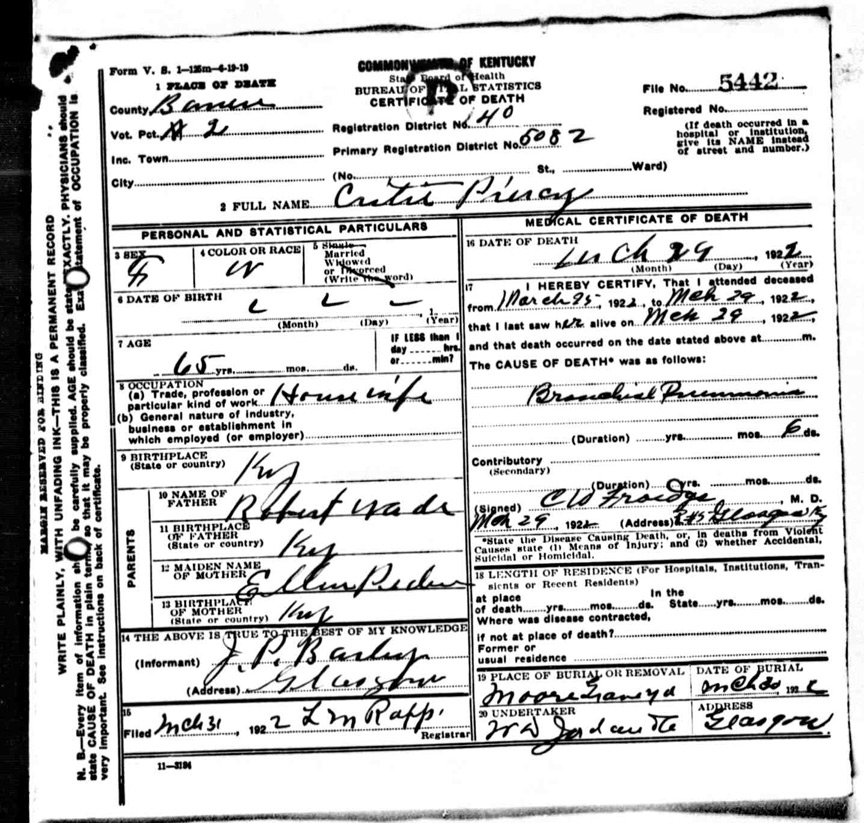 Form V. S. 1—125m—4-19-19
COMMONWEALTH OF KENTUCKY
State Board of Health
BUREAU OF VITAL STATISTICS
CERTIFICATE OF DEATH
File No. 5442
Registered No.
(If death occurred in a hospital or institution, give its NAME instead of street and number.)
1 PLACE OF DEATH
County Barren
Vot. Pct. # 2
Inc. Town
City
Registration District No. 40
Primary Registration District No. 5082
(No. St., Ward)
2 FULL NAME Critie Piercy
PERSONAL AND STATISTICAL PARTICULARS
3 SEX F
4 COLOR OR RACE W
5 Single
Married
Widowed
or Divorced
(Write the word)
6 DATE OF BIRTH
(Month) (Day) (Year)
, 1
7 AGE
65 yrs. mos. ds.
IF LESS than 1
day hrs.
or min?
8 OCCUPATION
(a) Trade, profession or
particular kind of work House wife
(b) General nature of industry,
business or establishment in
which employed (or employer)
9 BIRTHPLACE
(State or country) Ky
PARENTS
10 NAME OF
FATHER Robert Wade
11 BIRTHPLACE
OF FATHER
(State or country) Ky
12 MAIDEN NAME
OF MOTHER Ellen
13 BIRTHPLACE
OF MOTHER
(State or country) Ky
14 THE ABOVE IS TRUE TO THE BEST OF MY KNOWLEDGE
(Informant) J. P.
(Address) Glasgow
15
Filed Mch 31, 1922 L M Rapp.
Registrar
11—3194
MEDICAL CERTIFICATE OF DEATH
16 DATE OF DEATH
Mch 29, 1922
(Month) (Day) (Year)
17 I HEREBY CERTIFY, That I attended deceased
from March 25, 1922, to Mch 29, 1922,
that I last saw her alive on Mch 29, 1922,
and that death occurred on the date stated above at m.
The CAUSE OF DEATH* was as follows:
Bronchial Pneumonia
(Duration) yrs. mos. 6 ds.
Contributory
(Secondary)
(Duration) yrs. mos. ds.
(Signed) C W Froedge, M. D.
Mch 29, 1922 (Address) Glasgow Ky
*State the Disease Causing Death, or, in deaths from Violent
Causes state (1) Means of Injury; and (2) whether Accidental,
Suicidal or Homicidal.
18 LENGTH OF RESIDENCE (For Hospitals, Institutions, Tran-
sients or Recent Residents)
at place In the
of death yrs. mos. ds. State yrs. mos. ds.
Where was disease contracted,
if not at place of death?
Former or
usual residence
19 PLACE OF BURIAL OR REMOVAL
Moore Graveyd
DATE OF BURIAL
Mch 30, 1922
20 UNDERTAKER
W D Jordan
ADDRESS
Glasgow
MARGIN RESERVED FOR BINDING
WRITE PLAINLY, WITH UNFADING INK—THIS IS A PERMANENT RECORD
N. B.—Every item of information should be carefully supplied. AGE should be stated EXACTLY. PHYSICIANS should
state CAUSE OF DEATH in plain terms, so that it may be properly classified. Exact statement of OCCUPATION is
very important. See instructions on back of certificate.